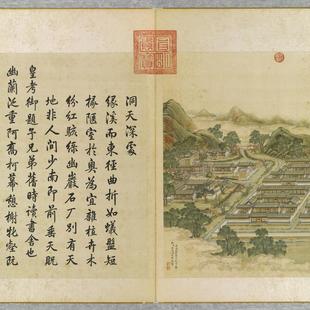 洞天深處
緣溪而東徑曲折如蟻盤短
椽陿室於奧為宜雜植卉木
紛紅駭綠幽巖石厂別有天
地非人間少南即前垂天貺
皇考御題予兄弟舊時讀書舍也
幽蘭泛重阿喬柯幕憩榭牝壑既